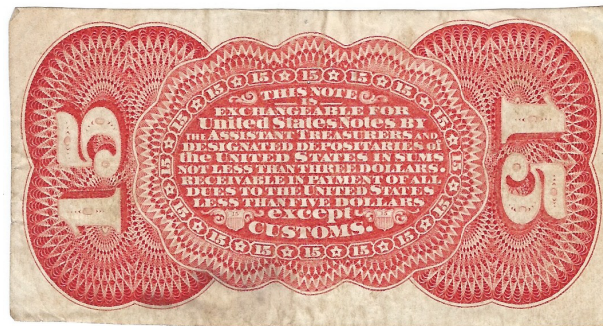 THIS NOTE
IS
EXCHANGEABLE FOR
United States Notes BY
THE ASSISTANT TREASURERS AND
DESIGNATED DEPOSITARIES of
the UNITED STATES IN SUMS
NOT LESS THAN THREE DOLLARS.
RECEIVABLE IN PAYMENT OF ALL
DUES TO THE UNITED STATES
LESS THAN FIVE DOLLARS
except
CUSTOMS.
15
15
15 15 15 15 15 15 15 15 15 15 15 15 15 15 15 15 15 15 15 15